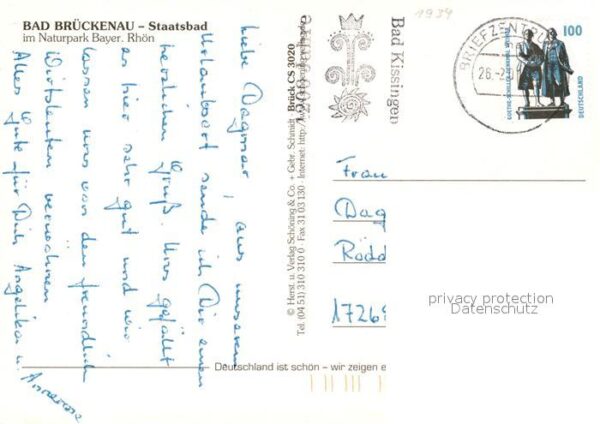 BAD BRÜCKENAU – Staatsbad
im Naturpark Bayer. Rhön
1934
Liebe Dagmar, aus unserem
Urlaubsort sende ich Dir einen
herzlichen Gruß. Uns gefällt
es hier sehr gut und wir
lassen uns von den freundlich
Wirtsleuten verwöhnen
Alles Gute für Dich Angelika u.
© Herst. u. Verlag Schöning & Co. + Gebr. Schmidt Brück CS 3020
Tel. (04 51) 310 310 0 · Fax 31 03 130 · Internet: http://
Bad Kissingen
BRIEFZENTRUM
26.-2
100
DEUTSCHLAND
Frau
Dag
Rödd
1726
privacy protection
Datenschutz
Deutschland ist schön – wir zeigen e